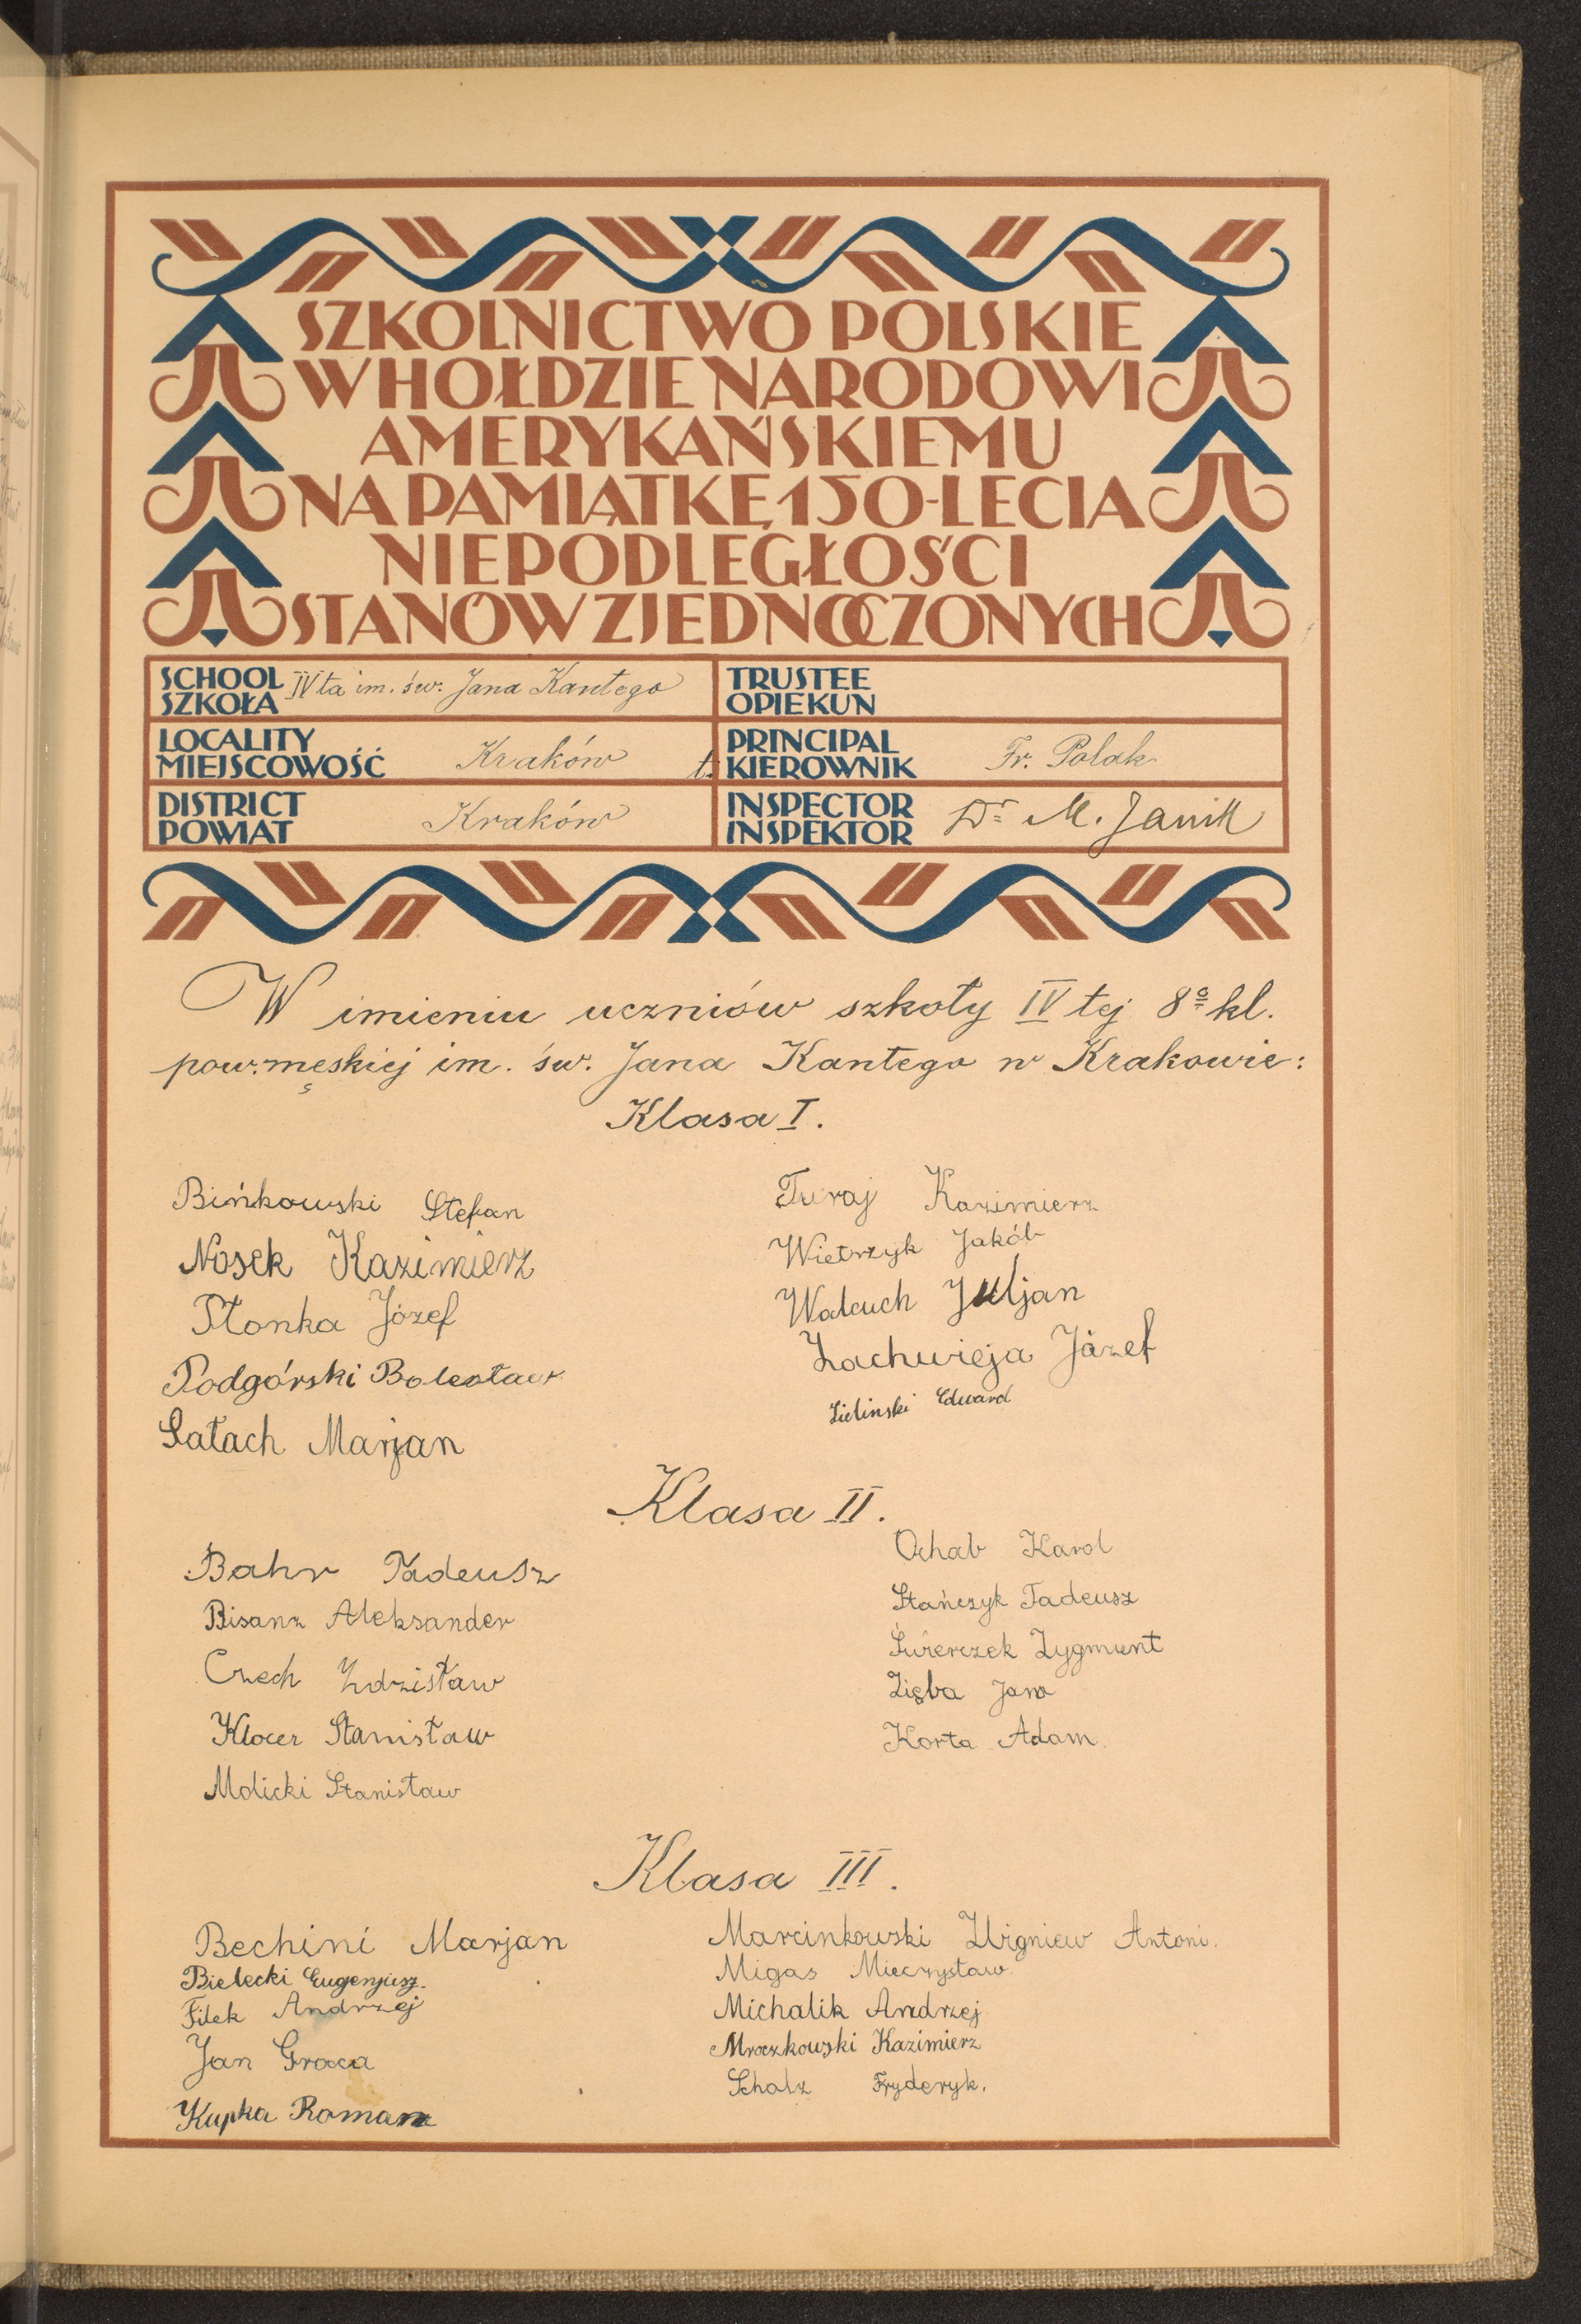 SZKOLNICTWO POLSKIE
W HOŁDZIE NARODOWI
AMERYKAŃSKIEMU
NA PAMIĄTKĘ 150-LECIA
NIEPODLEGŁOŚCI
STANÓW ZJEDNOCZONYCH
SCHOOL
SZKOŁA
IV ta im. św. Jana Kantego
TRUSTEE
OPIEKUN
LOCALITY
MIEJSCOWOŚĆ
Kraków
t.
PRINCIPAL
KIEROWNIK
Fr. Polak
DISTRICT
POWIAT
Kraków
INSPECTOR
INSPEKTOR
Dr M. Janik
W imieniu uczniów szkoły IV tej 8o kl.
pow. męskiej im. św. Jana Kantego w Krakowie:
Klasa I.
Bińkowski Stefan
Nosek Kazimierz
Płonka Józef
Podgórski Bolesław
Sałach Marjan
Turaj Kazimierz
Wietrzyk Jakób
Walcuch Juljan
Zachwieja Józef
Zieliński Edward
Klasa II.
Bahr Tadeusz
Bisanz Aleksander
Czech Zdzisław
Klocer Stanisław
Molicki Stanisław
Ochab Karol
Stańczyk Tadeusz
Świerczek Zygmunt
Zięba Jan
Korta Adam
Klasa III.
Bechini Marjan
Bielecki Eugenjusz.
Filek Andrzej
Jan Graca
Kupka Roman
Marcinkowski Zbigniew Antoni.
Migas Mieczysław
Michalik Andrzej
Mroczkowski Kazimierz
Scholz Fryderyk.